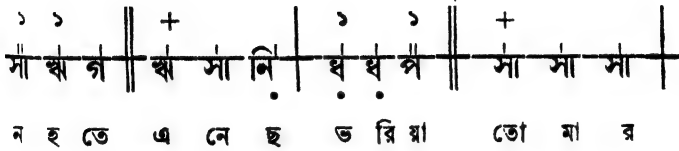 ১ ১ + ১ ১ +
সা ঋ গ ‖ ঋ সা নি্ | ধ্ ধ্ প ‖ সা সা সা |
ন হ তে এ নে ছ ভ রি য়া তো মা র